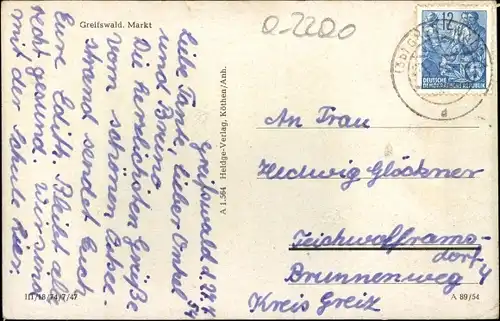 Greifswald. Markt
0-2200
Greifswald d. 27.7. 54
Liebe Tante, lieber Onkel
und Bruno
Die herzlichsten Grüße
vom schönen Ostsee-
strand sendet Euch
Eure Edith. Bleibt alle
recht gesund. Wir sind
mit der Schule hier.
A 1.564 Heldge-Verlag, Köthen/Anh.
III/18/74/7/47
DEUTSCHE
DEMOKRATISCHE REPUBLIK
An Frau
Hedwig Glöckner
Teichwolframs-
dorf
Brunnenweg 4
Kreis Greiz
A 89/54